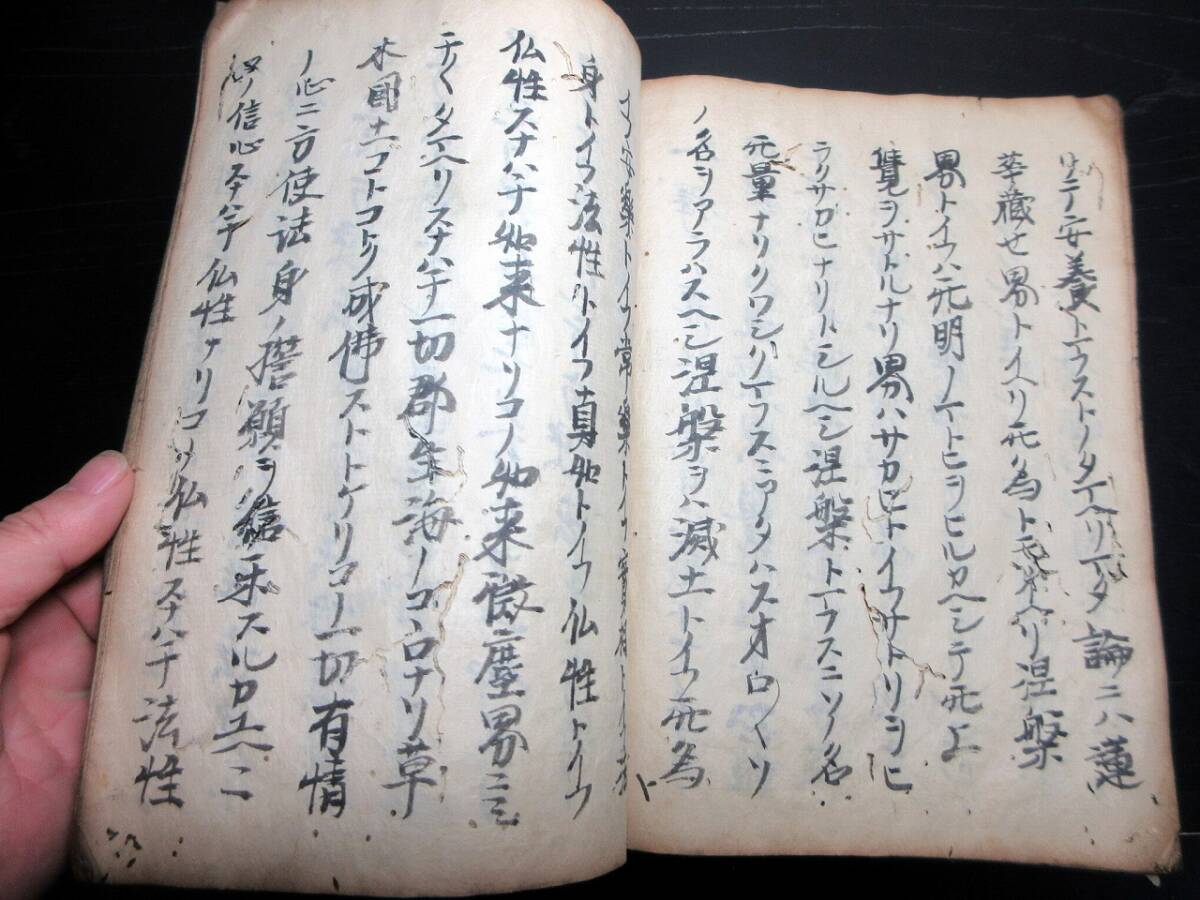 安養トマフストノタマヘリマタ論ニハ蓮
華蔵せ界トイヘリ无為トモイヘリ涅槃
界トイフハ无明ノマトヒヲヒルカヘシテ无上
覺ヲサトルナリ界ハサカヒトイフサトリヲヒ
ラクサカヒナリトシルヘシ涅槃トマフスニソノ名
无量ナリクワシクマフスニアタハスオロ〱ソ
ノ名ヲアラハスヘシ涅槃ヲハ滅土トイフ无為ト
イフ安樂トイフ常樂トイフ實相トイフ法
身トイフ法性トイフ真如トイフ仏性トイフ
仏性スナハチ如来ナリコノ如来微塵界ニミ
チ〱タマヘリスナハチ一切郡生海ノコヽロナリ草
木国土コトコトク成佛ストトケリコノ一切有情
ノ心ニ方便法身ノ誓願ヲ樂スルカユヘニコ
ノ信心スナハチ仏性ナリコノ仏性スナハチ法性